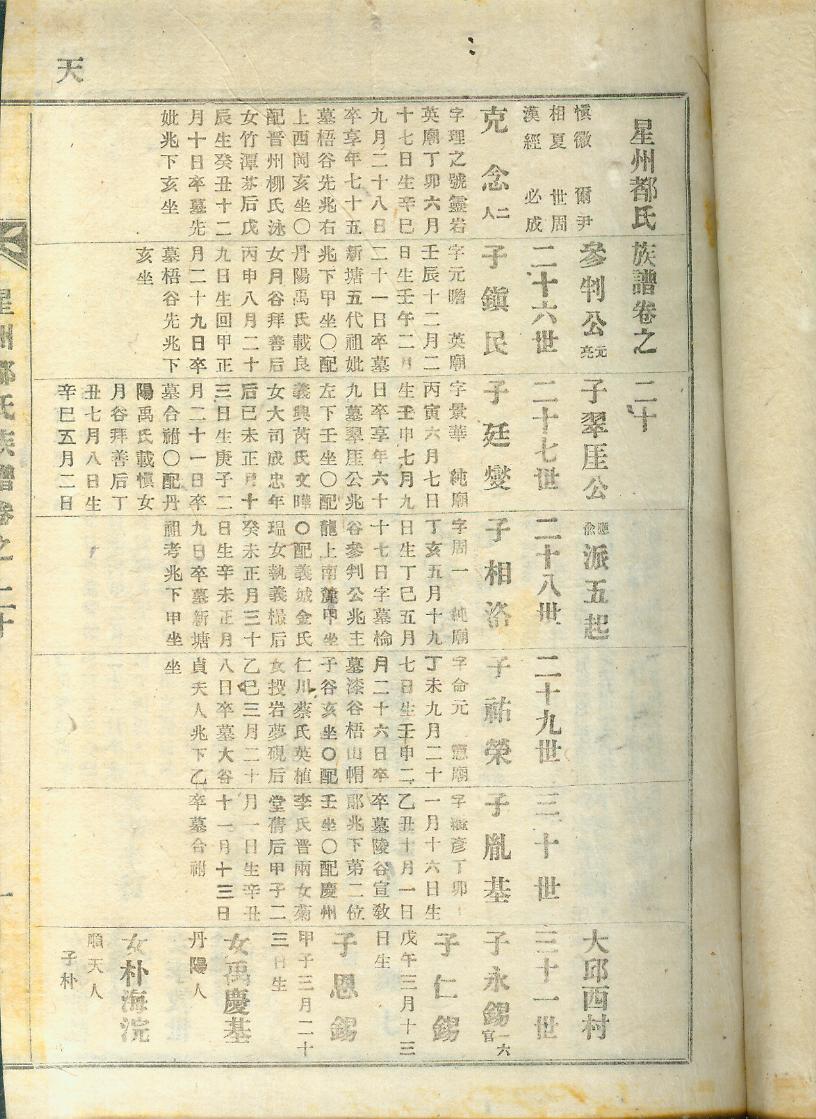 天
星州都氏族譜卷之二十
愼徵 爾尹
相夏 世周
漢經 必成
參判公元亮
子翠厓公
派五起
大邱西村
二十六世
二十七世
二十八世
二十九世
三十世
三十一世
克念二人
字理之號靈岩
英廟丁卯六月
十七日生辛巳
九月二十八日
卒享年七十五
墓梧谷先兆右
上西岡亥坐〇
配晋州柳氏泳
女竹潭
后戊
辰生癸丑十二
月十日卒墓先
妣兆下亥坐
子鎭民
字元瞻 英廟
壬辰十二月二
日生壬午二月
二十一日卒墓
新塘五代祖妣
兆下甲坐〇配
丹陽禹氏載良
女月谷拜善后
丙申八月二十
九日生回甲正
月二十九日卒
墓梧谷先兆下
亥坐
子廷燮
字景華 純廟
丙寅六月七日
生壬申七月九
日卒享年六十
九墓翠厓公兆
左下壬坐〇配
義興芮氏文曄
女大司成忠年
后己未正月十
三日生庚子二
月二十一日卒
墓合祔〇配丹
陽禹氏載愼女
月谷拜善后丁
丑七月八日生
辛巳五月二日
子相洛
字周一 純廟
丁亥五月十九
日生丁巳五月
十七日字墓棆
谷參判公兆主
龍上南麓甲坐
〇配義城金氏
瑥女執義㮨后
癸未正月三十
日生辛未正月
九日卒墓新塘
祖考兆下甲坐
子祐榮
字命元 憲廟
丁未九月二十
七日生壬申二
月二十六日卒
墓漆谷梧山帽
子谷亥坐〇配
仁川蔡氏英植
女投岩夢硯后
乙巳三月二十
八日卒墓大谷
貞夫人兆下乙
坐
子胤基
字
彦丁卯
一月十六日生
乙丑十月一日
卒墓陵谷宣敎
郞兆下第二位
壬坐〇配慶州
李氏晋雨女菊
堂蒨后甲子二
月一日生辛丑
十一月十三日
卒墓合祔
子永錫一六官
子仁錫
戊午三月十三
日生
子恩錫
甲子三月二十
三日生
女禹慶基
丹陽人
女朴海浣
順天人
子朴
星州都氏族譜卷之二十
一